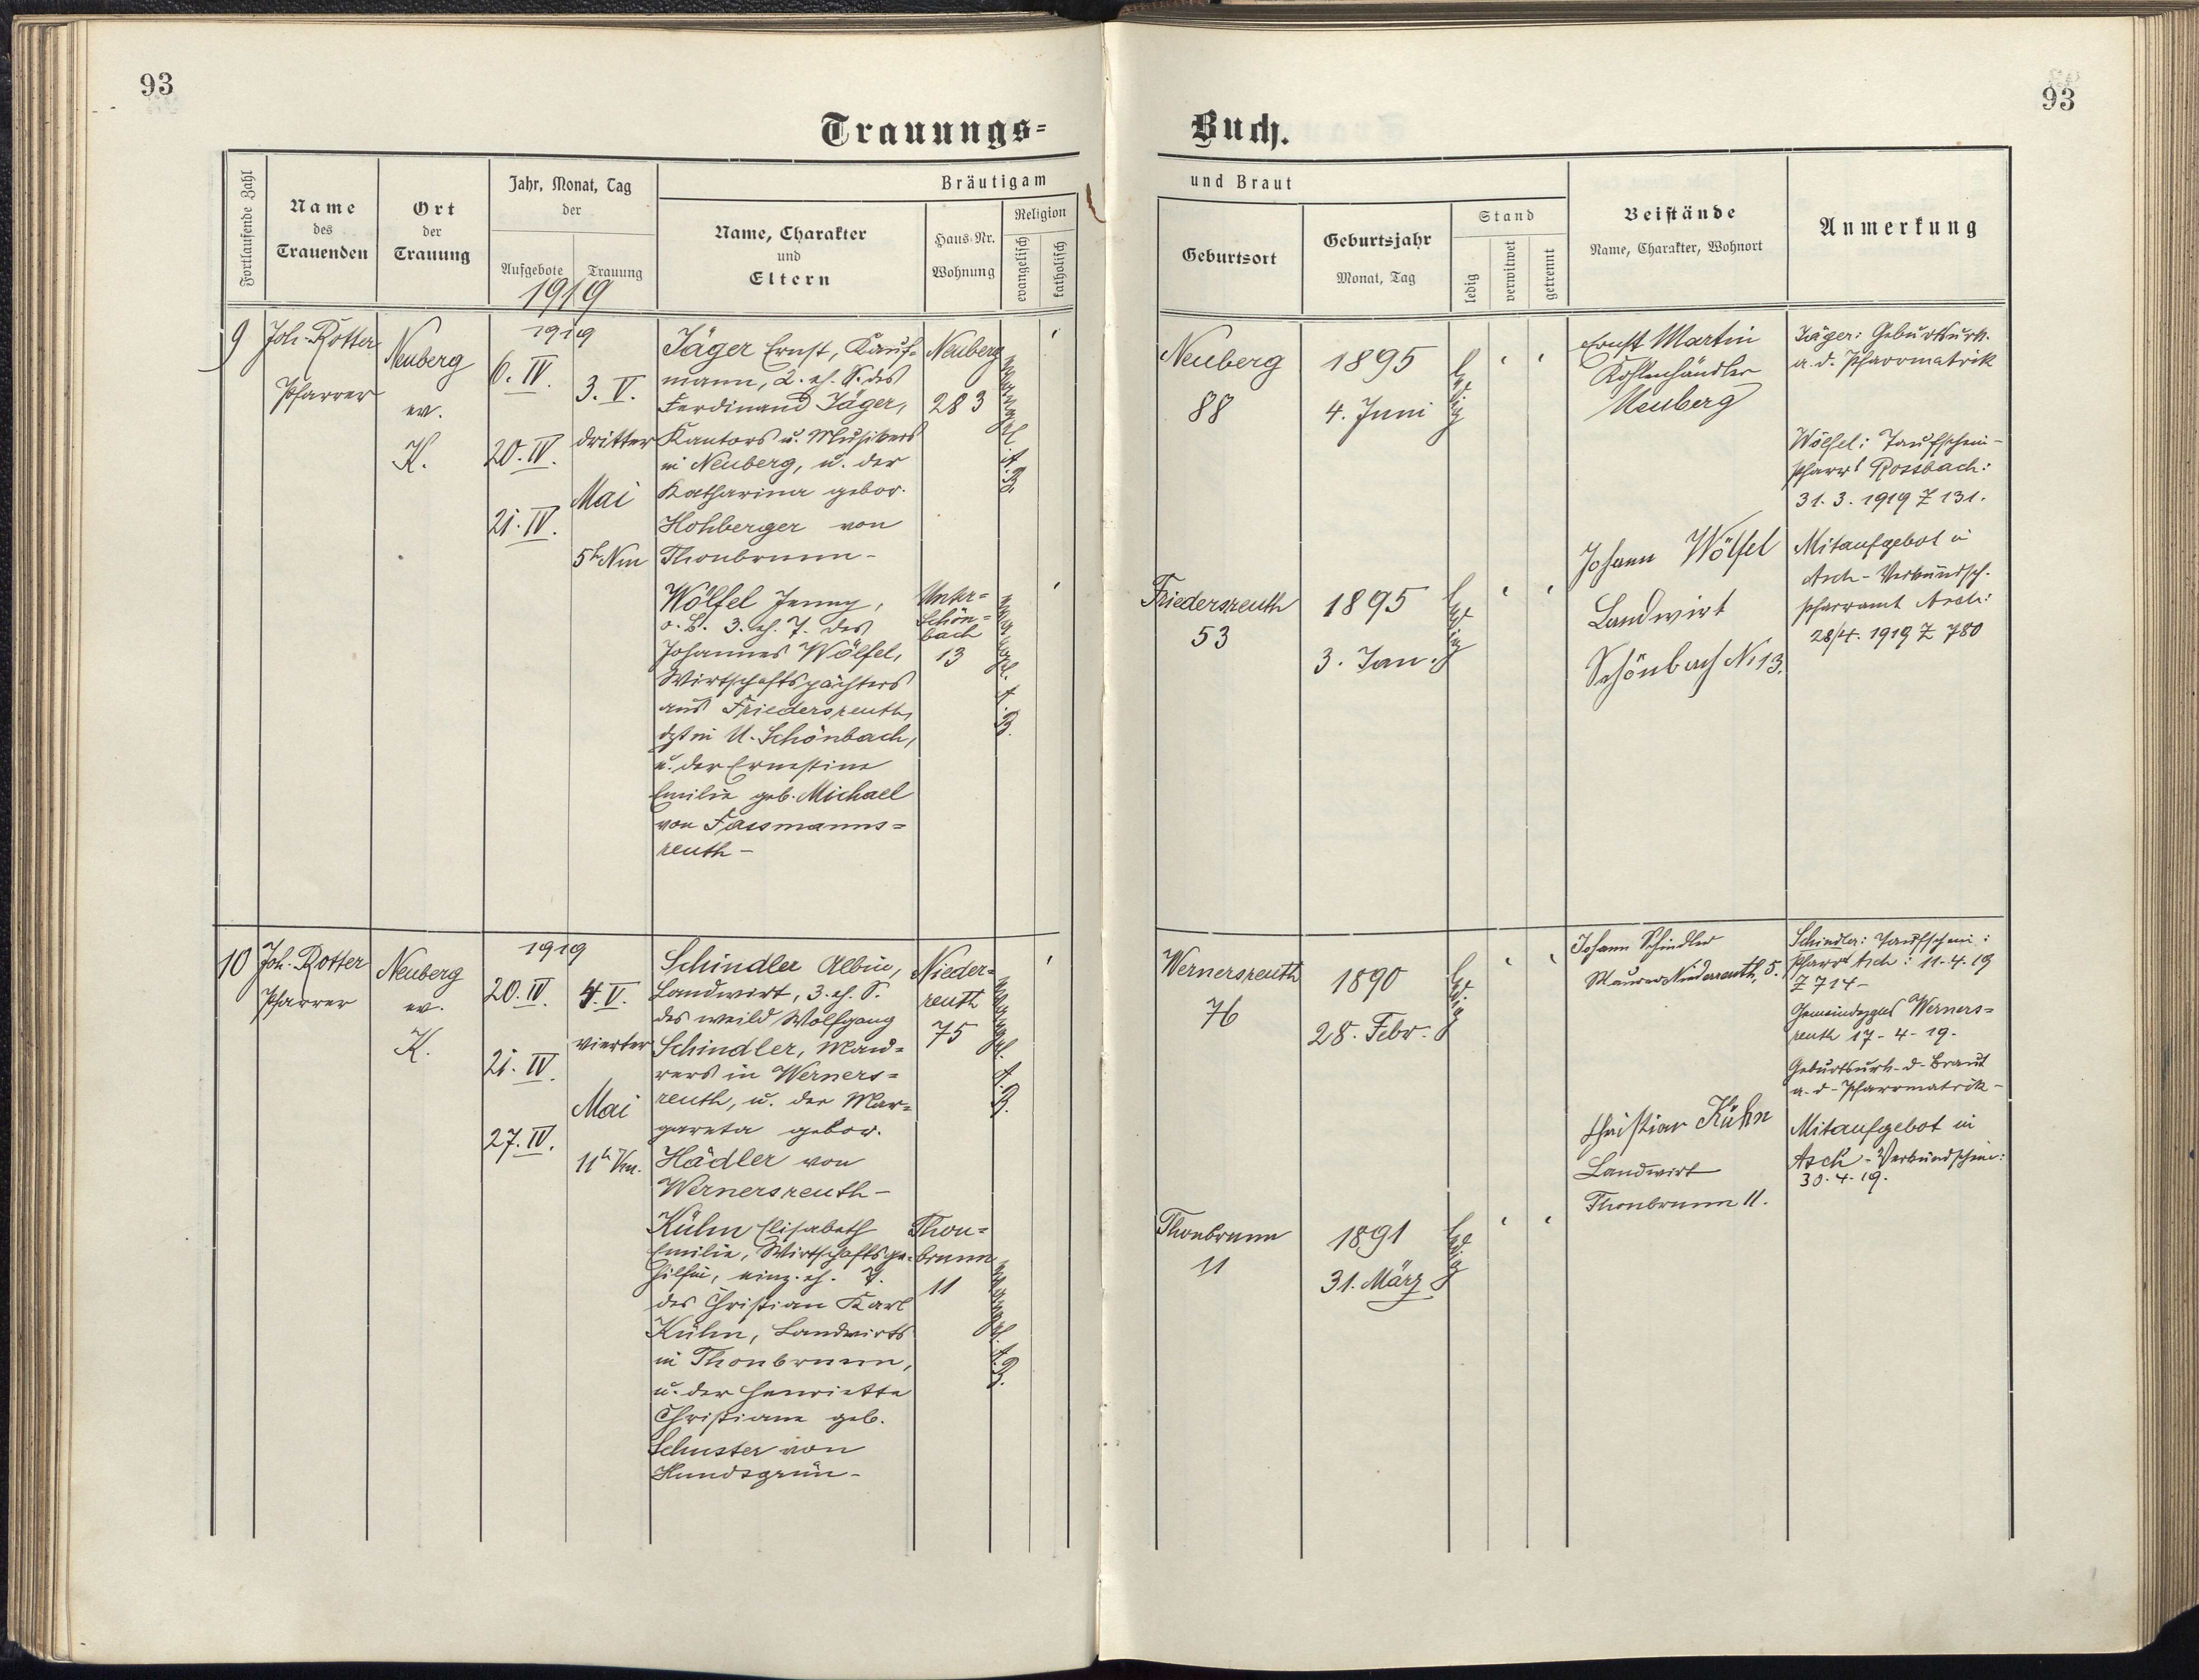 93
93
Trauungs=
Buch.
Fortlaufende Zahl
Name
des
Trauenden
Ort
der
Trauung
Jahr, Monat, Tag
der
Aufgebote
Trauung
1919
Bräutigam
Name, Charakter
und
Eltern
Haus-Nr.
Wohnung
Religion
evangelisch
katholisch
und Braut
Geburtsort
Geburtsjahr
Monat, Tag
Stand
ledig
verwitwet
getrennt
Beistände
Name, Charakter, Wohnort
Anmerkung
9
Joh. Rotter
Pfarrer
Neuberg
ev.
K.
1919
6. IV.
20. IV.
21. IV.
3. V.
dritter
Mai
5h Nm
Jäger Ernst, Kauf-
mann, 2. eh. S. des
Ferdinand Jäger,
Kantors u. Musikers
in Neuberg, u. der
Katharina gebor.
Hohberger von
Thonbrunn-
Neuberg
283
evangel. A. B.
Wölfel Jenny,
o. B. 3. eh. T. des
Johannes Wölfel,
Wirtschaftspächters
aus Friedersreuth,
dzt in U. Schönbach,
u. der Ernestine
Emilie geb. Michael
von Fassmanns=
reuth-
Unter=
Schön=
bach
13
evangel. A. B.
Neuberg
88
1895
4. Juni
ledig
Ernst Martin
Kohlenhändler
Neuberg
Jäger: Geburtsurk.
a. d. Pfarrmatrik
Wölfel: Taufschein-
Pfarrt Rossbach:
31. 3. 1919 Z 131.
Friedersreuth
53
1895
3. Jan.
ledig
Johann Wölfel
Landwirt
Schönbach No 13.
Mitaufgebot i
Asch-Verkündsch.
Pfarramt Asch:
28/4. 1919 Z 780
10
Joh. Rotter
Pfarrer
Neuberg
ev.
K.
1919
20. IV.
21. IV
27. IV.
4. V.
vierter
Mai
11h Vm.
Schindler Albin,
Landwirt, 3. eh. S.
des weild Wolfgang
Schindler, Mau=
rers in Werners=
reuth, u. der Mar=
gareta gebor.
Hädler von
Wernersreuth-
Nieder=
reuth
75
evangel. A. B.
Kühn Elisabeth
Emilie, Wirtschaftsge-
hilfin, einz. eh. T.
des Christian Karl
Kühn, Landwirts
in Thonbrunn,
u. der Henriette
Christiane geb.
Schuster von
Hundsgrün-
Thon=
brunn
11
evangel. A. B.
Wernersreuth
76
1890
28. Febr.
ledig
Johann Schindler
Maurer Niederreuth, 5.
Schindler: Taufschein:
Pfarrt Asch: 11-4-19
Z 714-
Werners=
reuth 17-4-19.
Geburtsurk-d-Braut
a-d-Pfarrmatrik-
Thonbrunn
11
1891
31. März
ledig
Christian Kühn
Landwirt
Thonbrunn 11.
Mitaufgebot in
Asch-Verkündschein:
30-4-19.